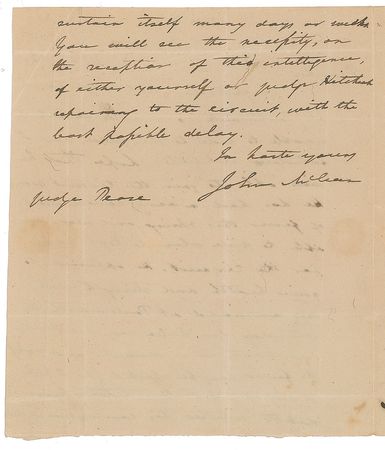 sustain itself many days or weeks
You will see the necessity, on
the reception of this intelligence,
of either yourself or judge Hitchcock
repairing to the circuit, with the
least possible delay.
In haste yours
John McLean
judge Pease